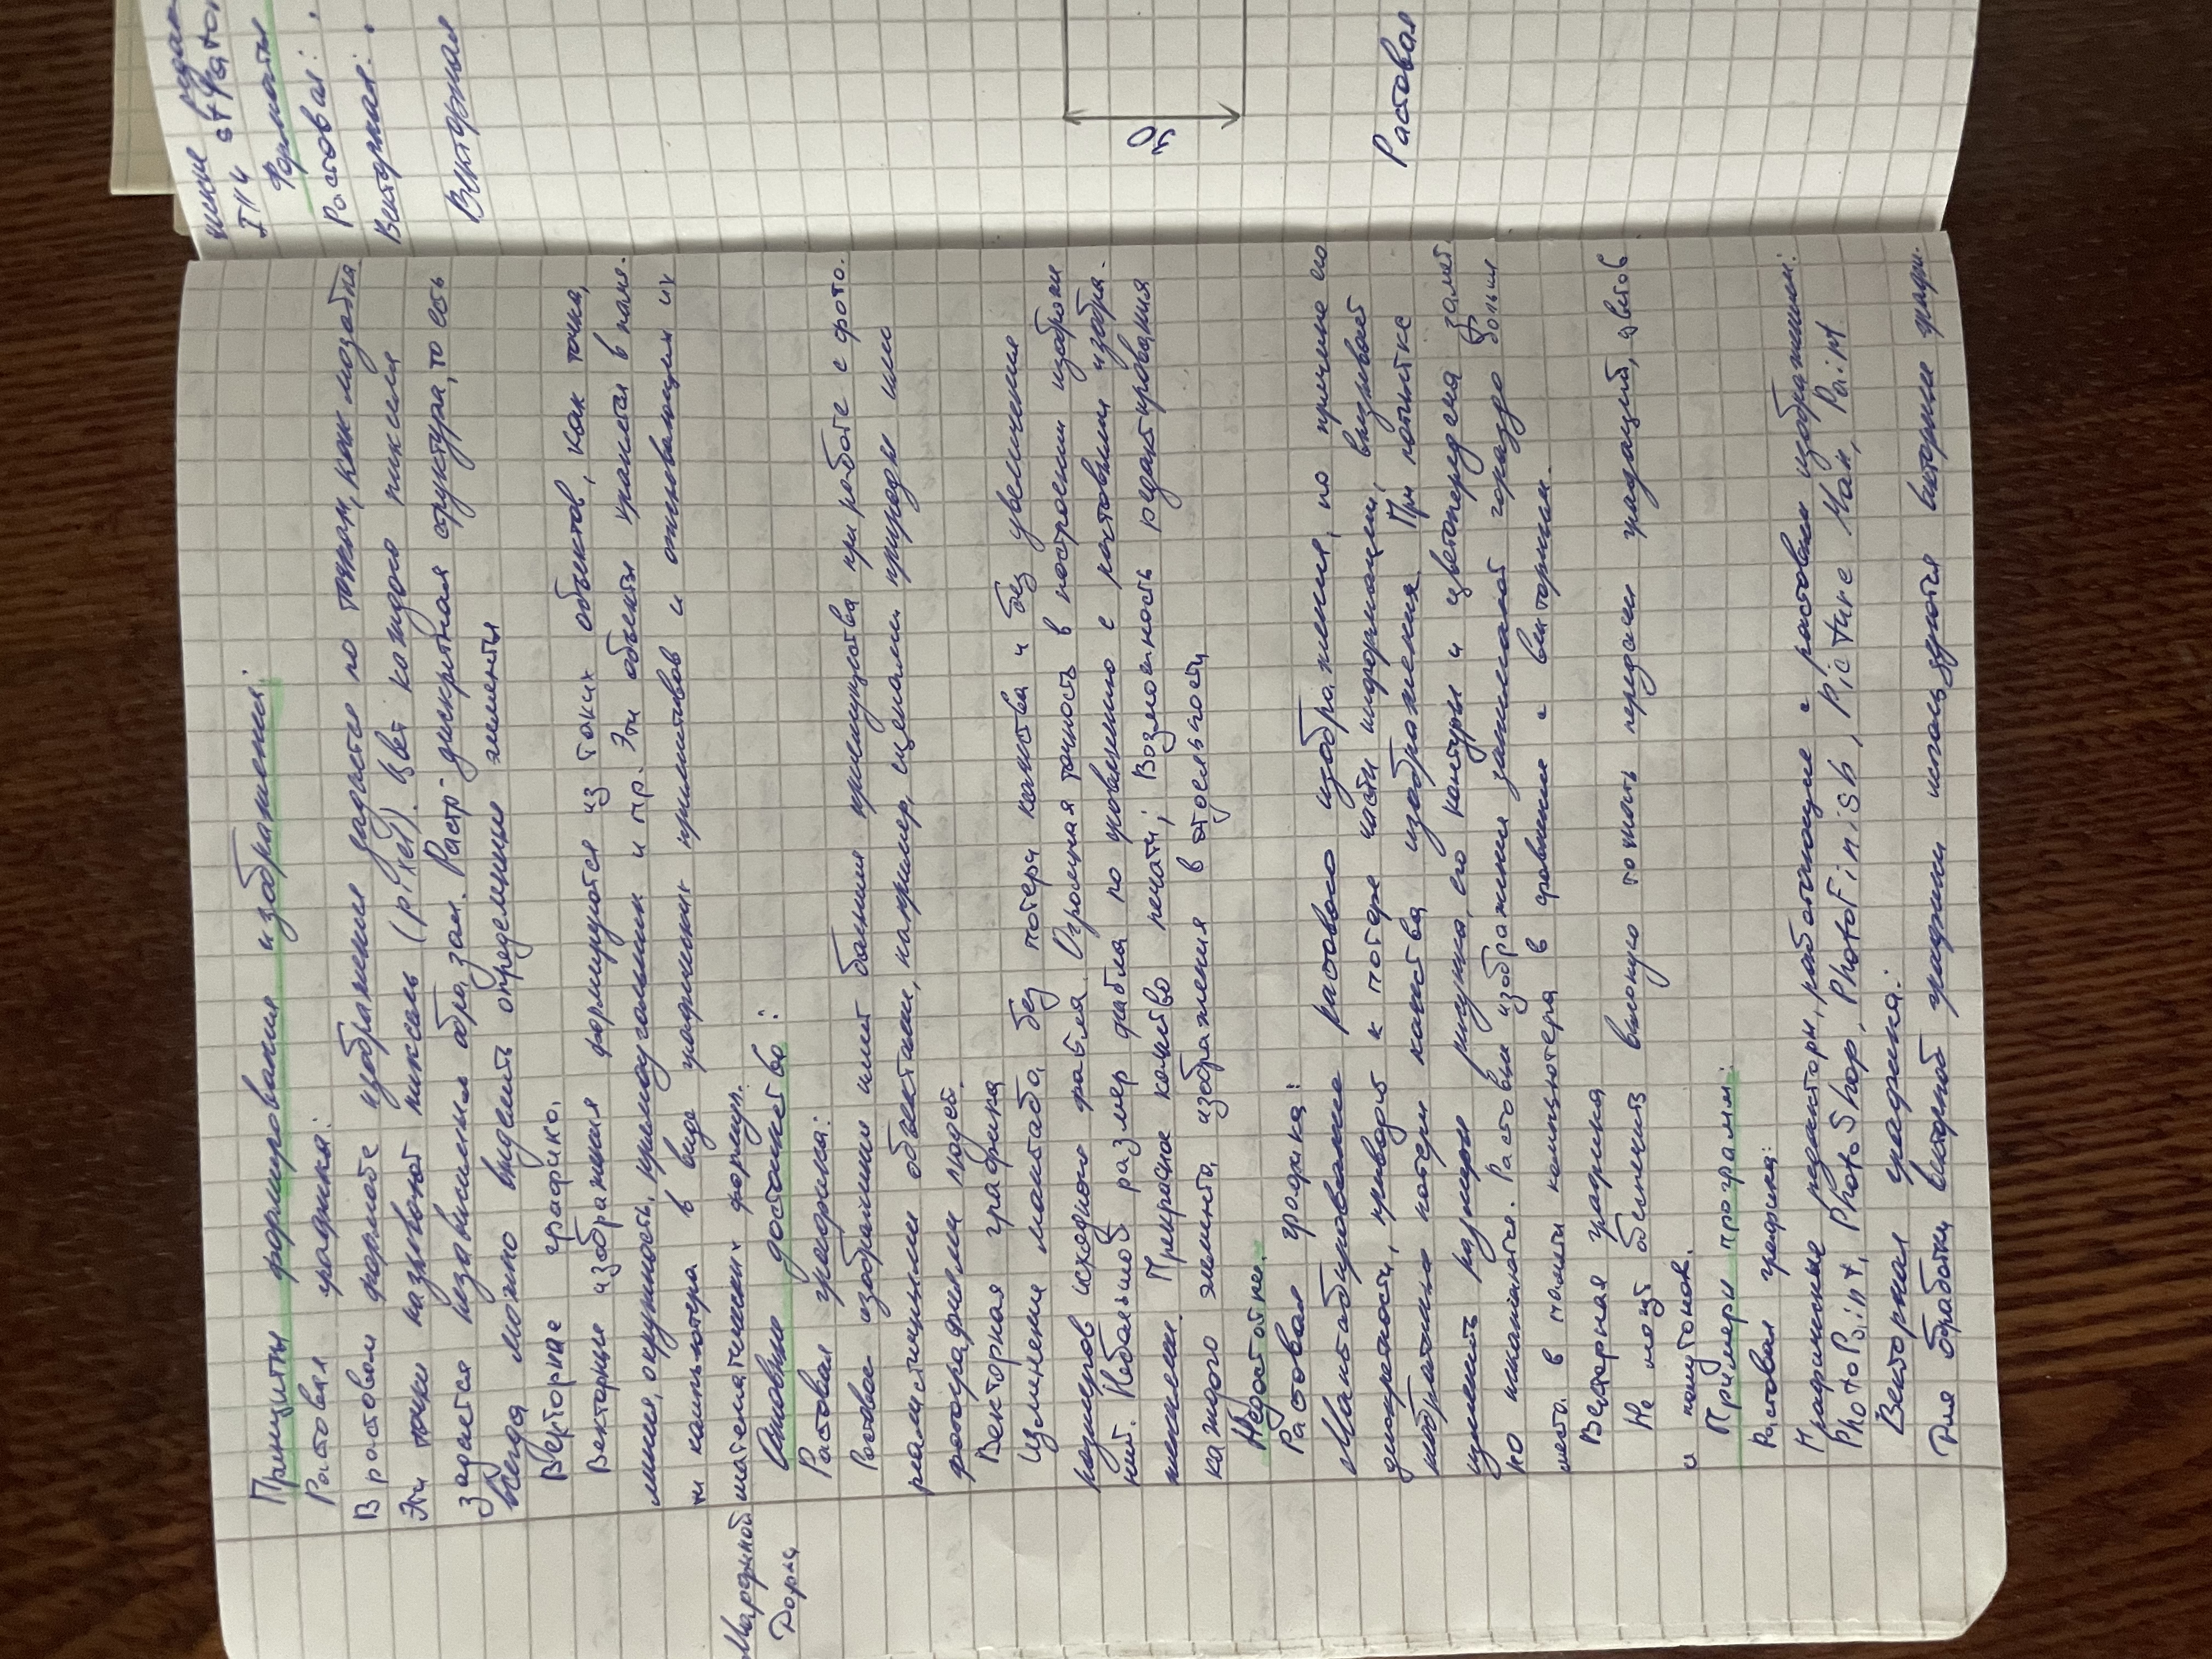 Принципы формирования изображения:
Растовая графика:
В растовом формате изображения задается по точкам, как мозайка
Эти точки называют пиксель (pixel). Цвет каждого пикселя
задается независимым образом. Растр - дискретная структура, то есть
всегда можно выделить определенные элементы
Векторная графика.
Векторные изображения формируются из таких объектов, как точка,
линия, окружность, прямоугольник и пр. Эти объекты хранятся в памя-
ти компьютера в виде графических примитивов и описывающих их
математических формул.
Мародиной
Дарьи
Основные достоинства:
Растовая графика:
Растовые изображения имеет большие преимущества при работе с фото.
реалистичными объектами, например, сценами природы или
фотографиями людей.
Векторная графика
Изменения масштаба без потери качества и без увеличения
размеров исходного файла. Огромная точность в построении изображе
ний. Небольшой размер файла по сравнению с растовыми изобра-
жениями. Прекрасное качество печати; Возможность редактирования
каждого элемента изображения в отдельности
Недостатки.
Растовая графика:
Масштабирование растового изображения, по причине его
дискретности, приводит к потере части информации, вызывает
потери качества изображения. При попытке
изменить размеры рисунка, его контуры и цветопередача замет
но искажаются. Растовые изображения занимают гораздо больше
места в памяти компьютера в сравнение с векторными.
Векторная графика
Не могут обеспечить высокую точность передачи градаций, цветов
и полутонов.
Примеры программ:
Растовая графика:
Графические редакторы, работающие с растовыми изображениями:
PhotoPoint, PhotoShop, PhotoFinish, Picture Man, Paint
Векторная графика:
Для обработки векторной графики используются векторные графи-
Форматы
Растовая:
Векторная:
Векторная
50
Растовая